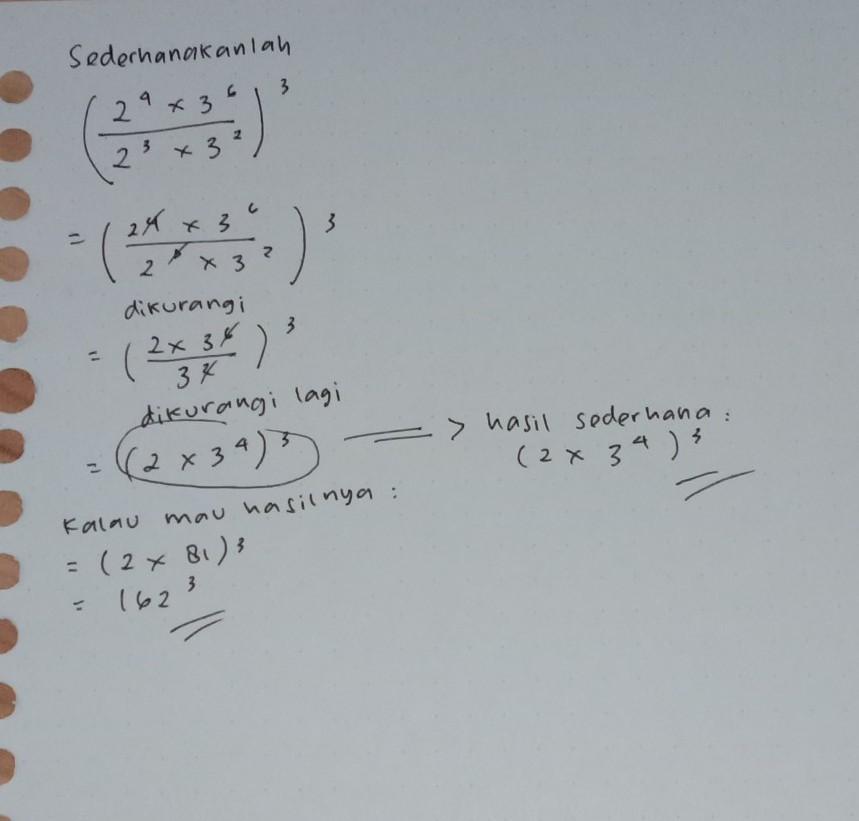 Sederhanakanlah
(2⁴ × 3⁶ / 2³ × 3²)³
= (2⁴ × 3⁶ / 2³ × 3²)³
dikurangi
= (2 × 3⁶ / 3²)³
dikurangi lagi
= (2 × 3⁴)³ ==> hasil sederhana :
(2 × 3⁴)³
Kalau mau hasilnya :
= (2 × 81)³
= 162³